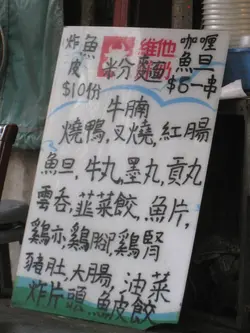 炸魚皮
$10份
維他奶
米分麵
咖喱魚旦
$6一串
牛腩
燒鴨,叉燒,紅腸
魚旦,牛丸,墨丸,貢丸
雲呑,韮菜餃,魚片,
雞亦,雞腳,雞腎
豬肚,大腸,油菜
炸片頭,魚皮餃